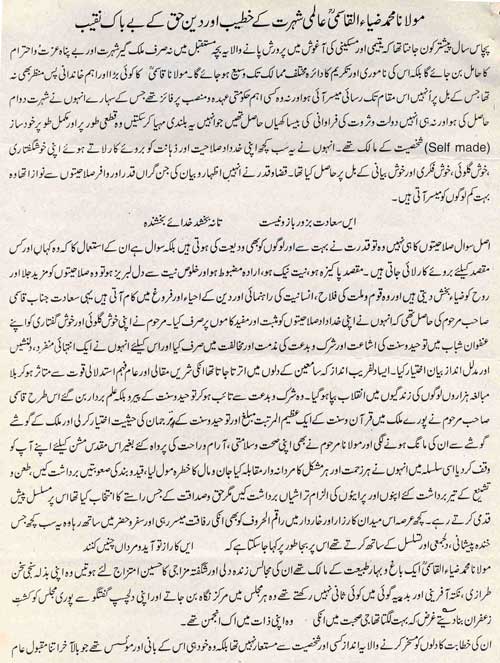 مولانا محمد ضیاء القاسمیؒ عالمی شہرت کے خطیب اور دین حق کے بے باک نقیب
پچاس سال پیشتر کون جانتا تھا کہ یتیمی اور مسکینی کی آغوش میں پرورش پانے والا یہ بچہ مستقبل میں نہ صرف ملک گیر شہرت اور بے پناہ عزت و احترام
کا حامل بن جائے گا بلکہ اس کی ناموری اور تکریم کا دائرہ مختلف ممالک تک وسیع ہو جائے گا۔ مولانا قاسمیؒ کا کوئی بڑا اور اہم خاندانی پس منظر بھی نہ
تھا جس کے بل پر انہیں اس مقام تک رسائی میسر آئی ہو اور نہ وہ کسی اہم حکومتی عہدہ و منصب پر فائز تھے جس کے سہارے انہوں نے شہرت دوام
حاصل کی ہو اور نہ ہی انہیں دولت و ثروت کی فراوانی کی بیساکھیاں حاصل تھیں جو انہیں یہ بلندی مہیا کر سکتیں وہ قطعی طور پر اور مکمل طور پر خود ساز
(Self made) شخصیت کے مالک تھے۔ انہوں نے یہ سب کچھ اپنی خداداد صلاحیت اور ذہانت کو بروئے کار لاتے ہوئے اپنی خوش گفتاری
خوش گلوئی، خوش فکری اور خوش بیانی کے بل پر حاصل کیا تھا۔ قضا و قدر نے انہیں اظہار و بیان کی جن گراں قدر اور وافر صلاحیتوں سے نوازا تھا وہ
بہت کم لوگوں کو میسر آتی ہیں۔
ایں سعادت بزور بازو نیست تا نہ بخشد خدائے بخشندہ
اصل سوال صلاحیتوں کا ہی نہیں وہ تو قدرت نے بہت سے اور لوگوں کو بھی ودیعت کی ہوتی ہیں بلکہ سوال ہے ان کے استعمال کا کہ وہ کہاں اور کس
مقصد کیلئے بروئے کار لائی جاتی ہیں۔ مقصد پاکیزہ ہو، نیت نیک ہو، ارادہ مضبوط ہو اور خلوص نیت سے دل لبریز ہو تو وہ صلاحیتوں کو مزید جلا اور
روح کو ضیاء بخش دیتی ہیں اور وہ قوم و ملت کی فلاح، انسانیت کی راہنمائی اور دین کے احیاء اور فروغ میں کام آتی ہیں یہی سعادت جناب قاسمی
صاحب مرحوم کی حاصل تھی کہ انہوں نے اپنی خداداد صلاحیتوں کو مثبت اور مفید کاموں پر صرف کیا۔ مرحوم نے اپنی خوش گلوئی اور خوش گفتاری کو اپنے
عنفوان شباب میں توحید و سنت کی اشاعت اور شرک و بدعت کی مذمت اور مخالفت میں صرف کیا اور اس کیلئے انہوں نے ایک انتہائی منفرد، دلنشیں
اور مدلل انداز بیان اختیار کیا۔ ایسا دلفریب انداز کہ سامعین کے دلوں میں اترتا جاتا تھا انکی شیریں مقالی اور عام فہم استدلالی قوت سے متاثر ہو کر بلا
مبالغہ ہزاروں لوگوں کی زندگیوں میں انقلاب بپا ہو گیا۔ وہ شرک و بدعت سے تائب ہو کر توحید و سنت کے پیرو بلکہ علم بردار بن گئے اس طرح قاسمی
صاحب مرحوم نے پورے ملک میں قرآن و سنت کے ایک عظیم المرتبت مبلغ اور توحید و سنت کے ترجمان کی حیثیت اختیار کر لی اور ملک کے گوشے
گوشے سے ان کی مانگ ہونے لگی اور مولانا مرحوم نے بھی اپنی صحت و سلامتی، آرام و راحت کی پرواہ کئے بغیر اس مقدس مشن کیلئے اپنے آپ کو
وقف کر دیا اسی سلسلہ میں انہوں نے ہر زحمت اور ہر مشکل کا مردانہ وار مقابلہ کیا جان و مال کا خطرہ مول لیا، قید و بند کی صعوبتیں برداشت کیں، طعن و
تشنیع کے تیر برداشت کئے اپنوں اور پرایوں کی الزام تراشیاں برداشت کیں مگر حق و صداقت کے جس راستے کا انتخاب کیا تھا اس پر مسلسل پیش
قدمی کرتے رہے۔ کچھ عرصہ اس میدان کارزار اور خاردار میں راقم الحروف کو بھی انکی رفاقت میسر رہی اور سفر و حضر میں ساتھ رہا وہ یہ سب کچھ جس
خندہ پیشانی، دلجمعی اور تسلسل کے ساتھ کرتے تھے اس پر بجا طور پر کہا جا سکتا ہے کہ ایں کار از تو آید و مرداں چنیں کنند
مولانا محمد ضیاء القاسمیؒ ایک باغ و بہار طبیعت کے مالک تھے ان کی مجالس زندہ دلی اور شگفتہ مزاجی کا حسین امتزاج لئے ہوتیں وہ اپنی بذلہ سنجی سخن
طرازی، نکتہ آفرینی اور بدیہہ گوئی میں کوئی ثانی نہیں رکھتے تھے وہ ہر مجلس میں مرکز نگاہ بن جاتے اور اپنی دلچسپ گفتگو سے پوری مجلس کو کشت
زعفران بنا دیتے غرض کہ بہت لگتا تھا جی صحبت میں انکی وہ اپنی ذات میں اک انجمن تھے۔
ان کی خطابت کا دلوں کو مسخر کرنے والا یہ انداز کسی اور شخصیت سے مستعار نہیں تھا بلکہ وہ خود ہی اس کے بانی اور موسس تھے جو بالآخر اتنا مقبول عام